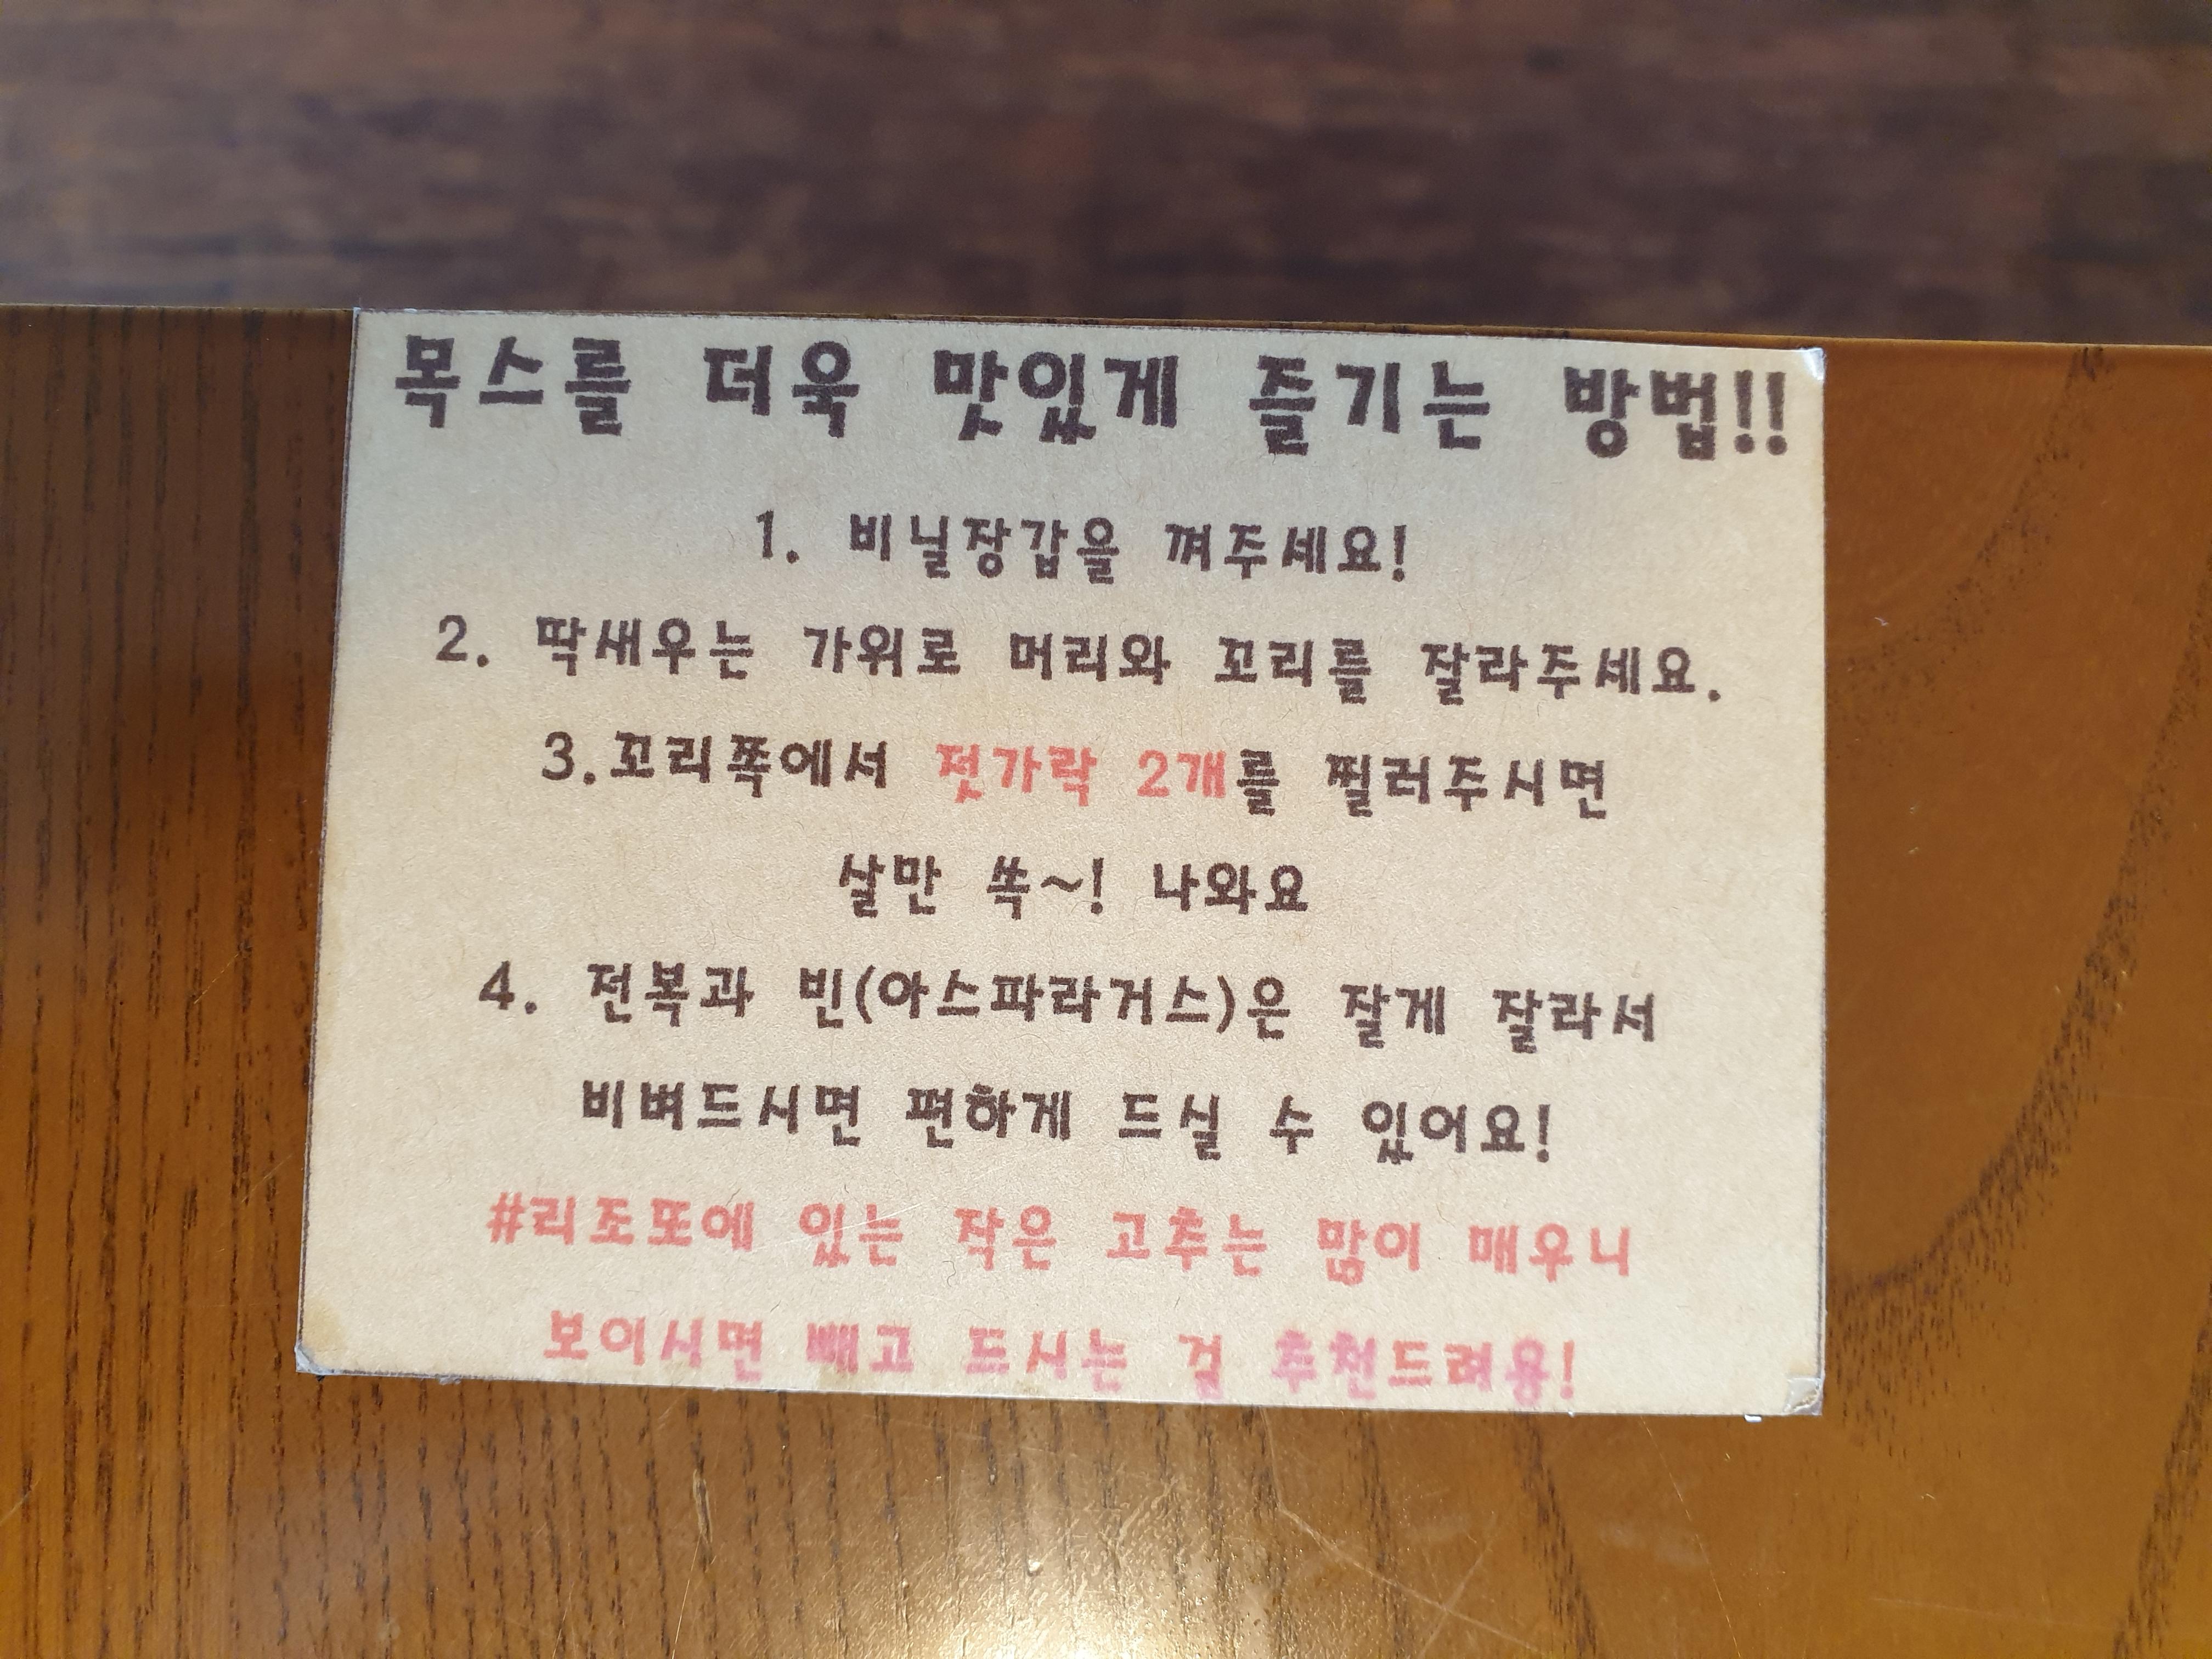 목스를 더욱 맛있게 즐기는 방법!!
1. 비닐장갑을 껴주세요!
2. 딱새우는 가위로 머리와 꼬리를 잘라주세요.
3.꼬리쪽에서 젓가락 2개를 찔러주시면
살만 쏙~! 나와요
4. 전복과 빈(아스파라거스)은 잘게 잘라서
비벼드시면 편하게 드실 수 있어요!
#리조또에 있는 작은 고추는 많이 매우니
보이시면 빼고 드시는 걸 추천드려용!